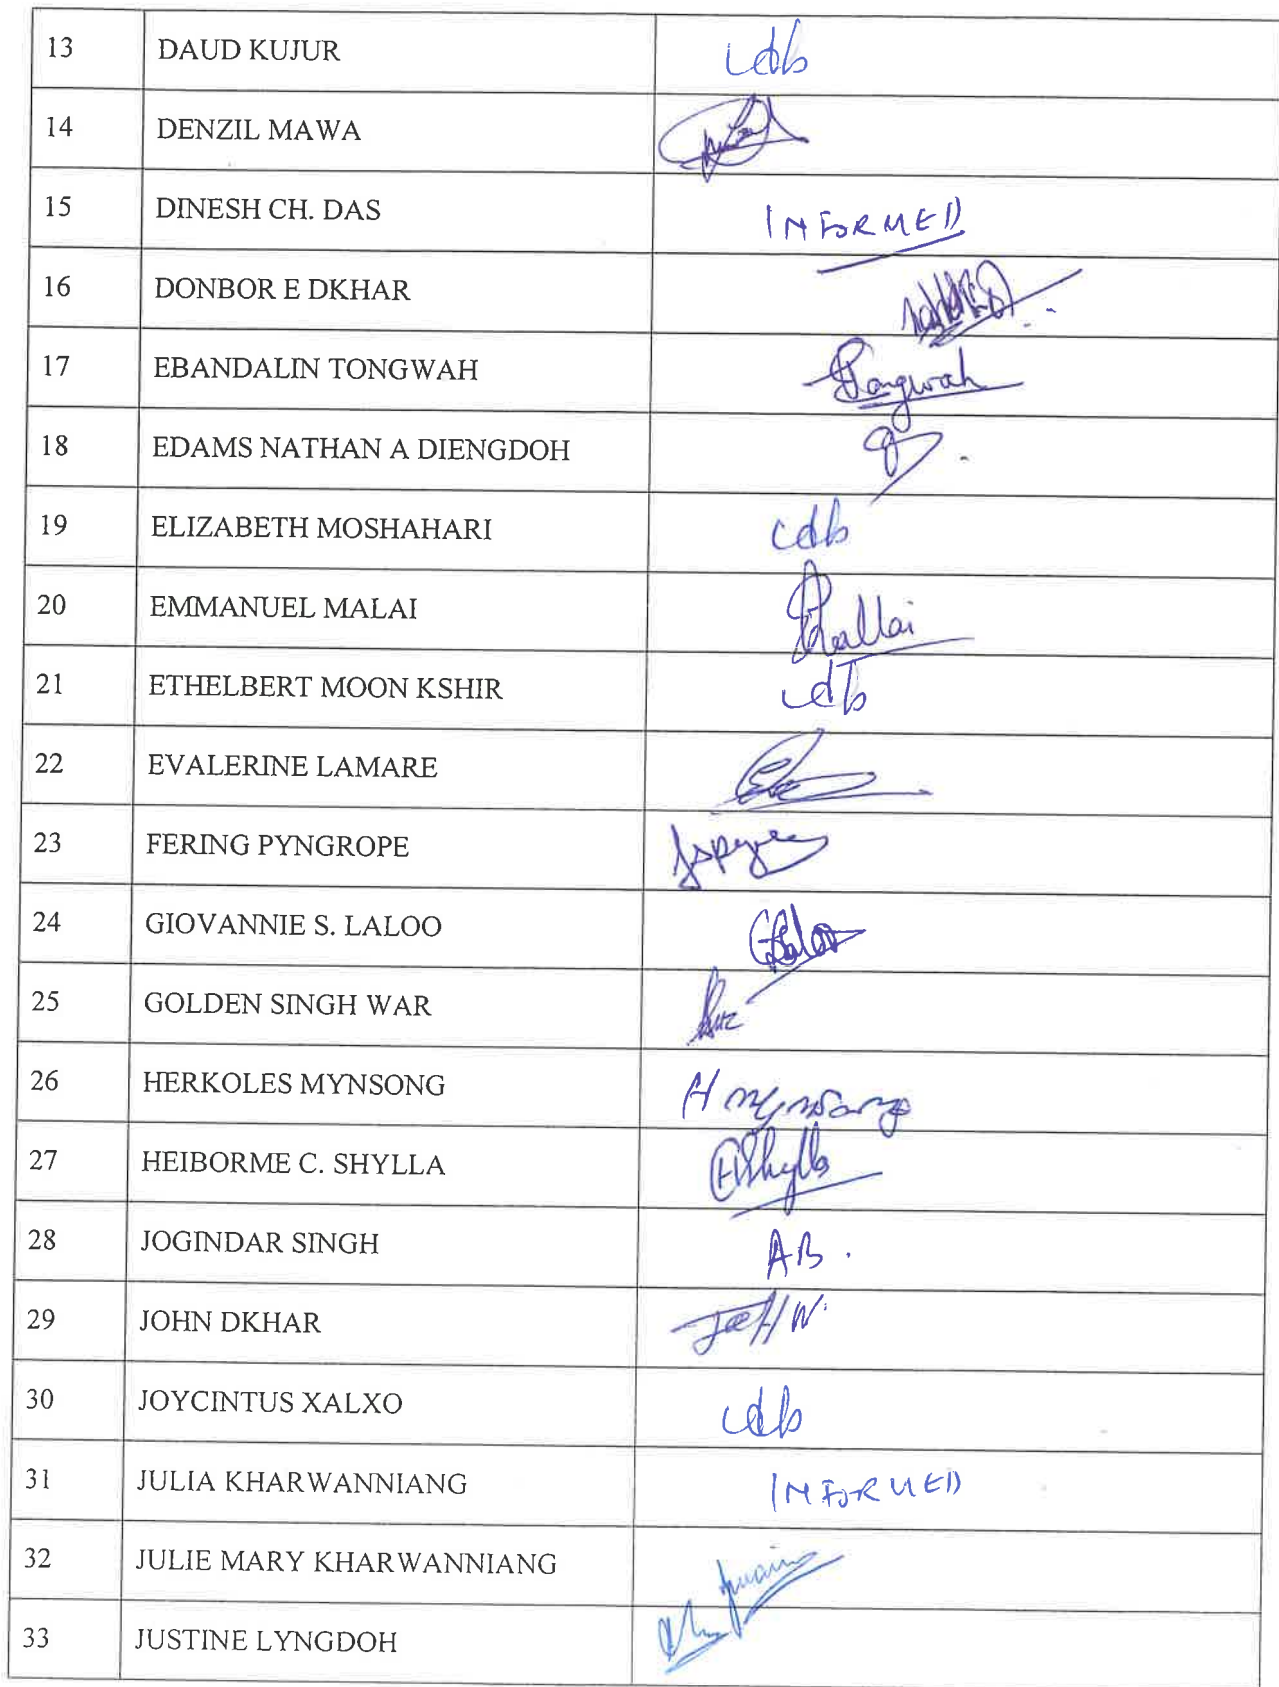 13 DAUD KUJUR
14 DENZIL MAWA
15 DINESH CH. DAS INFORMED
16 DONBOR E DKHAR
17 EBANDALIN TONGWAH Tongwah
18 EDAMS NATHAN A DIENGDOH
19 ELIZABETH MOSHAHARI
20 EMMANUEL MALAI
21 ETHELBERT MOON KSHIR
22 EVALERINE LAMARE
23 FERING PYNGROPE
24 GIOVANNIE S. LALOO
25 GOLDEN SINGH WAR
26 HERKOLES MYNSONG H Mynsong
27 HEIBORME C. SHYLLA HShylla
28 JOGINDAR SINGH AB.
29 JOHN DKHAR
30 JOYCINTUS XALXO
31 JULIA KHARWANNIANG INFORMED
32 JULIE MARY KHARWANNIANG
33 JUSTINE LYNGDOH